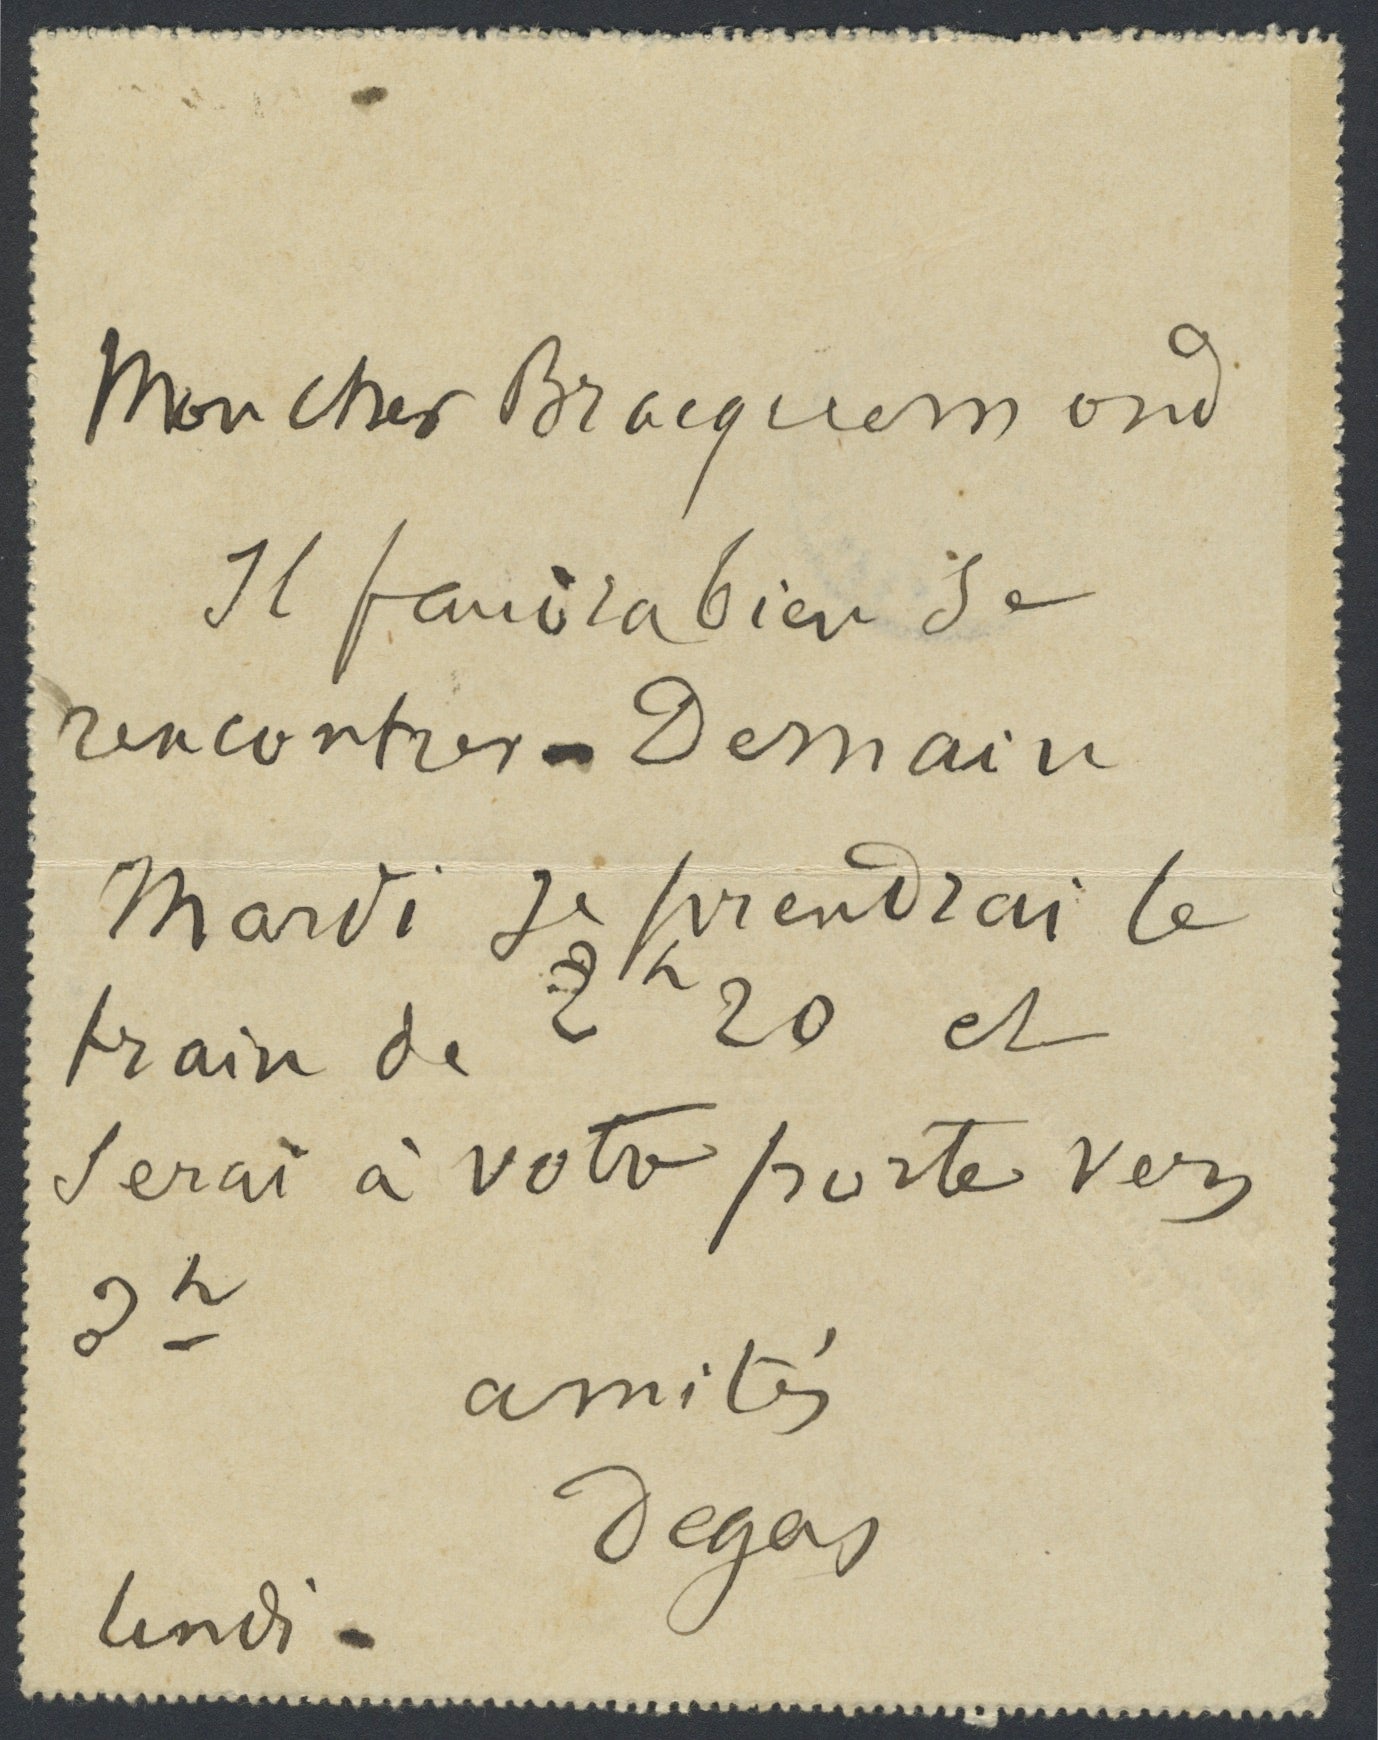 Mon cher Bracquemond
Il faudra bien se
rencontrer - Demain
Mardi je prendrai le
train de 2h 20 et
serai à votre porte vers
3h
amitiés
Degas
lundi -